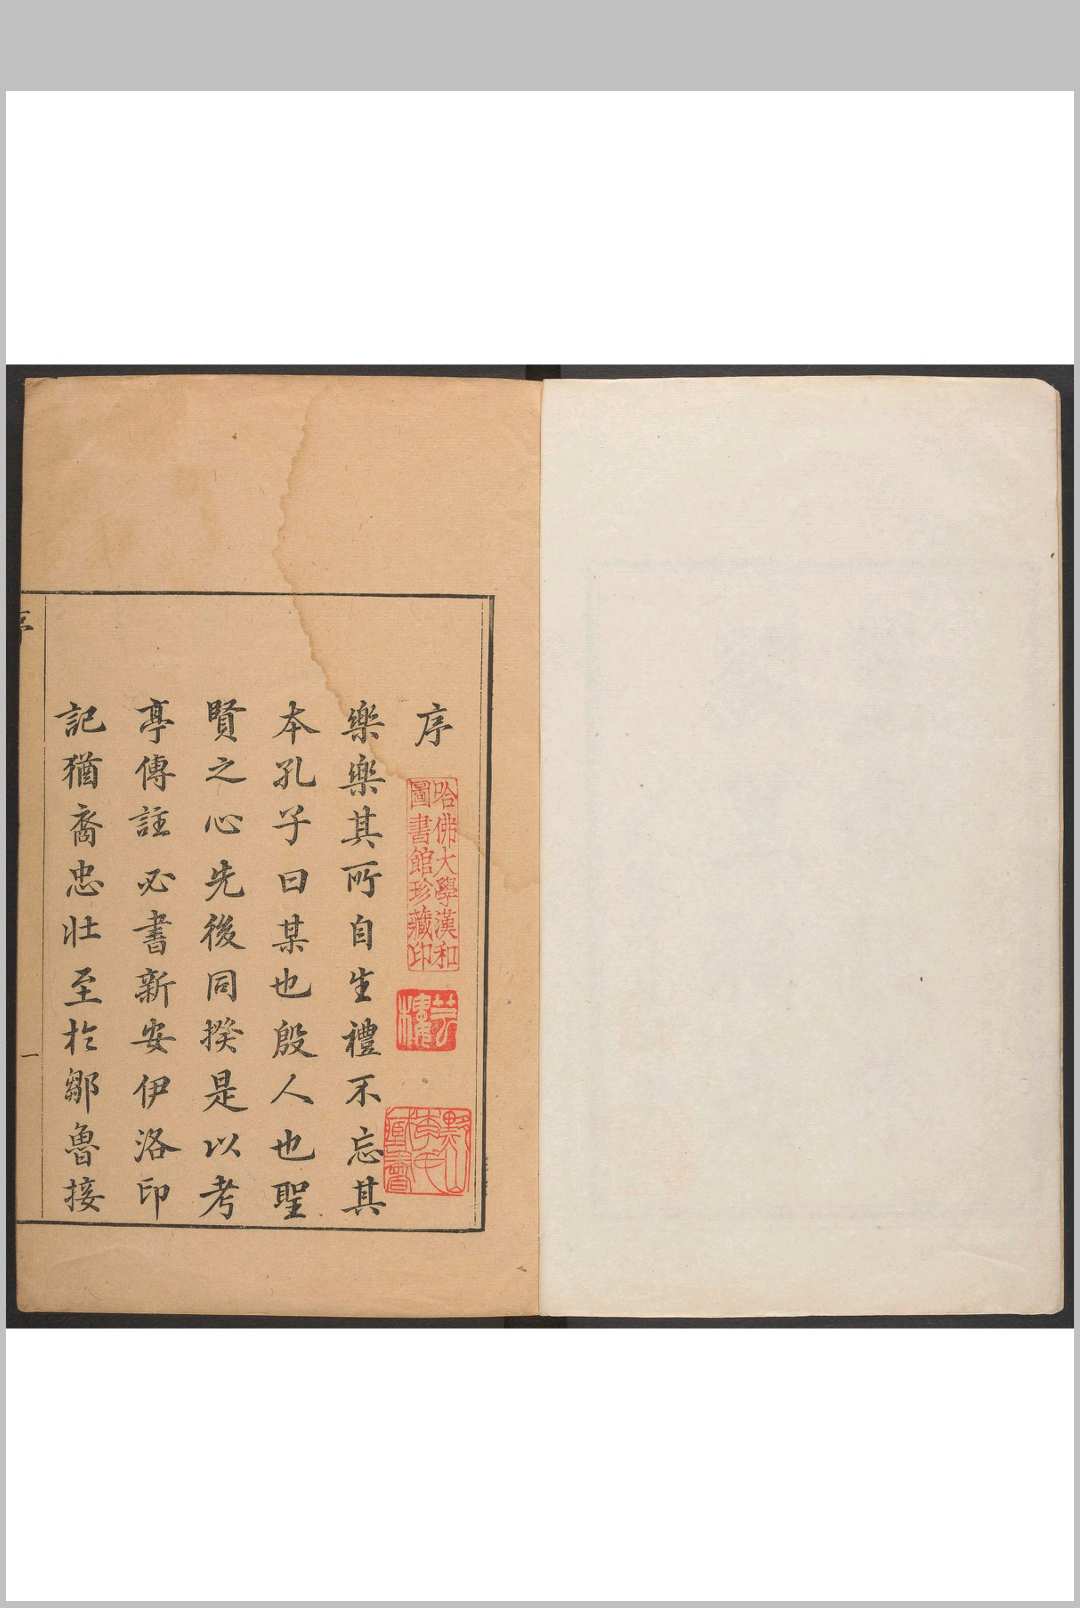 序
哈佛大學漢和
圖書館珍藏印
樂樂其所自生禮不忘其
本孔子曰某也殷人也聖
賢之心先後同揆是以考
亭傳註必書新安伊洛印
記猶裔忠壯至於鄒魯接
序
一